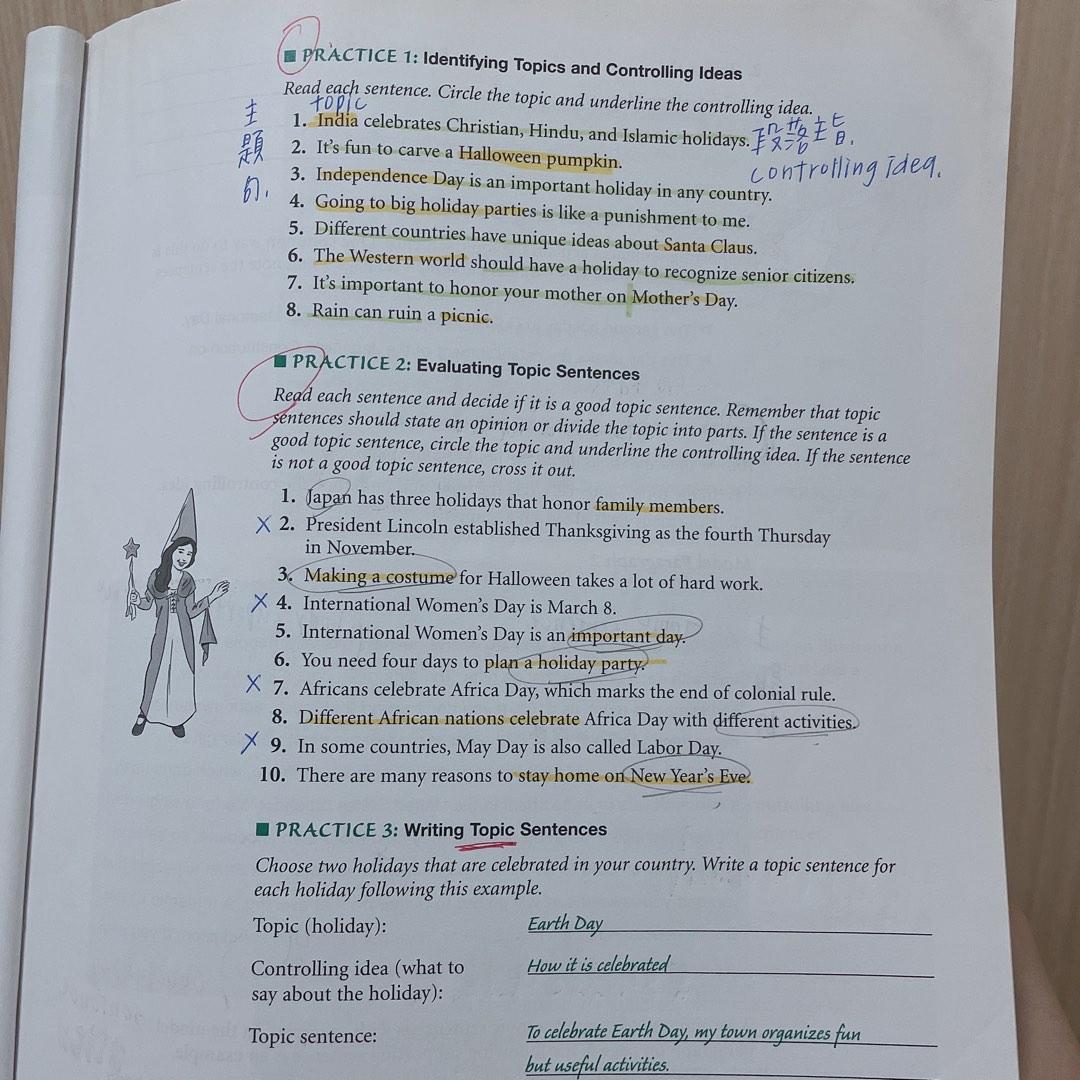 ■ PRACTICE 1: Identifying Topics and Controlling Ideas
Read each sentence. Circle the topic and underline the controlling idea.
topic
主題句.
1. India celebrates Christian, Hindu, and Islamic holidays.
段落主旨.
controlling idea.
2. It's fun to carve a Halloween pumpkin.
3. Independence Day is an important holiday in any country.
4. Going to big holiday parties is like a punishment to me.
5. Different countries have unique ideas about Santa Claus.
6. The Western world should have a holiday to recognize senior citizens.
7. It's important to honor your mother on Mother's Day.
8. Rain can ruin a picnic.
■ PRACTICE 2: Evaluating Topic Sentences
Read each sentence and decide if it is a good topic sentence. Remember that topic
sentences should state an opinion or divide the topic into parts. If the sentence is a
good topic sentence, circle the topic and underline the controlling idea. If the sentence
is not a good topic sentence, cross it out.
1. Japan has three holidays that honor family members.
X 2. President Lincoln established Thanksgiving as the fourth Thursday
in November.
3. Making a costume for Halloween takes a lot of hard work.
X 4. International Women's Day is March 8.
5. International Women's Day is an important day.
6. You need four days to plan a holiday party.
X 7. Africans celebrate Africa Day, which marks the end of colonial rule.
8. Different African nations celebrate Africa Day with different activities.
X 9. In some countries, May Day is also called Labor Day.
10. There are many reasons to stay home on New Year's Eve.
■ PRACTICE 3: Writing Topic Sentences
Choose two holidays that are celebrated in your country. Write a topic sentence for
each holiday following this example.
Topic (holiday): Earth Day
Controlling idea (what to How it is celebrated
say about the holiday):
Topic sentence: To celebrate Earth Day, my town organizes fun
but useful activities.